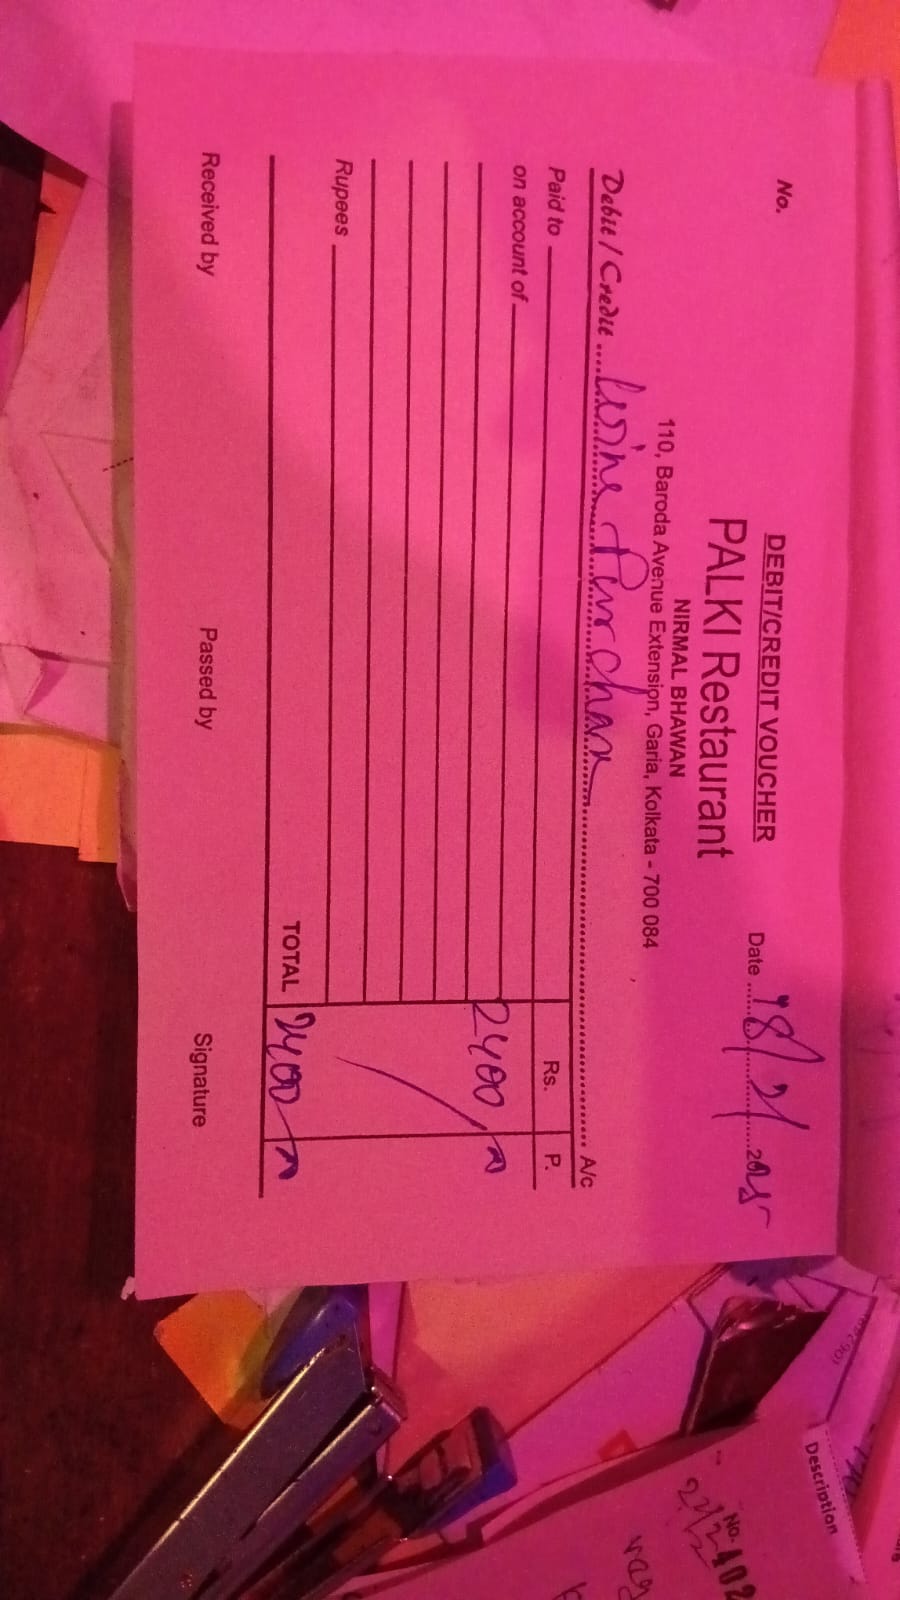 DEBIT/CREDIT VOUCHER
No.
PALKI Restaurant
Date
NIRMAL BHAWAN
110, Baroda Avenue Extension, Garia, Kolkata - 700 084
Debit / Credit wine Purchase A/c
Paid to Rs. P.
on account of 2400
Rupees
TOTAL 2400
Received by Passed by Signature
Description
No. 402